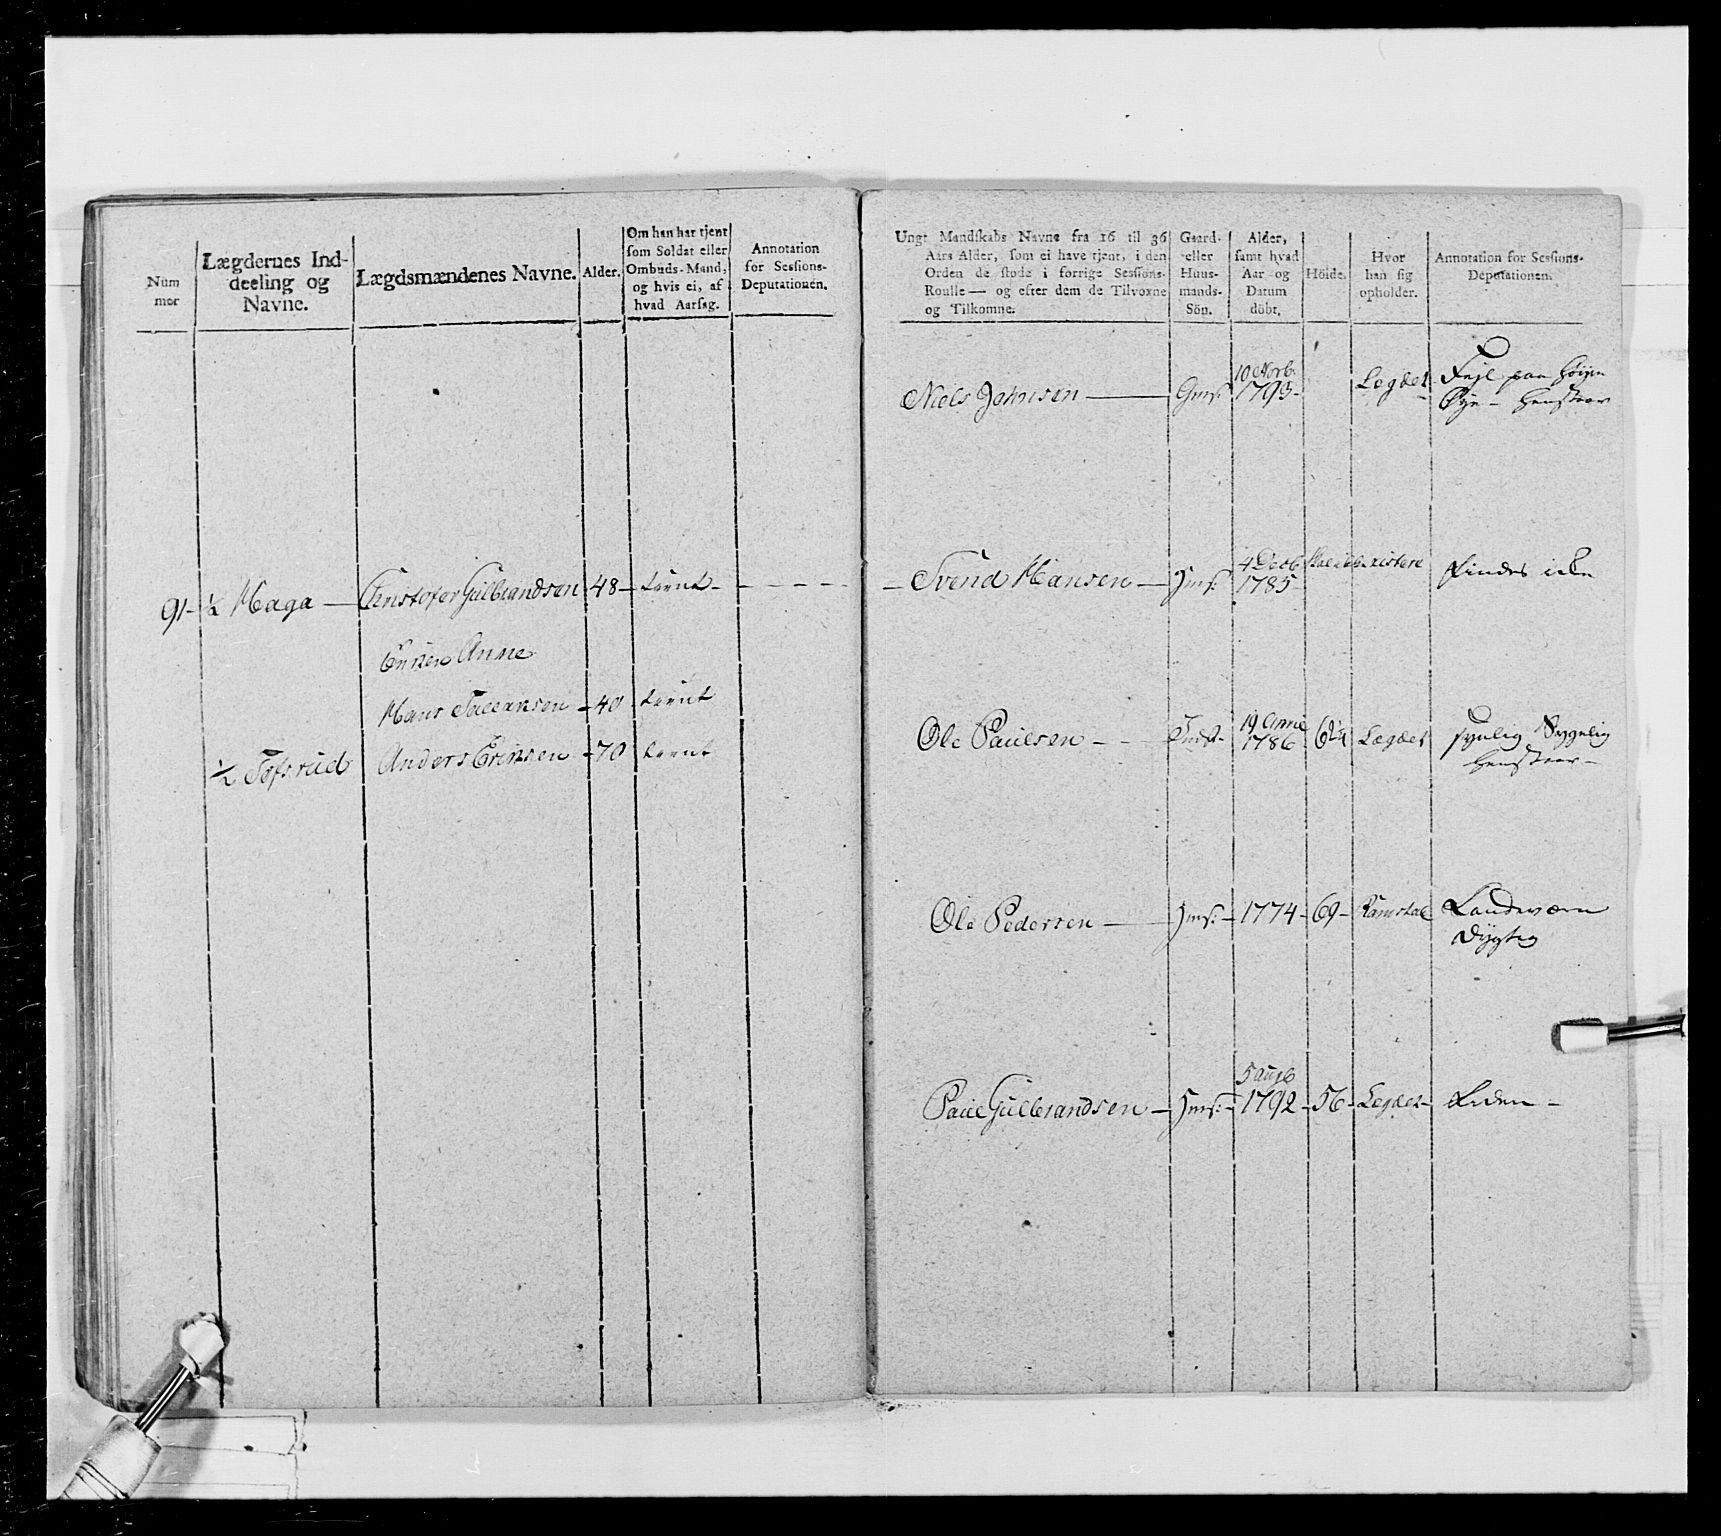 Num
mer
Lægdernes Ind-
deeling og
Navne.
Lægdsmændenes Navne.
Alder.
Om han har tjent
som Soldat eller
Ombuds-Mand,
og hvis ei, af
hvad Aarsag.
Annotation
for Sessions-
Deputationen.
91- ½ Haga — Christofer Gulbrandsen 48 - tient -
Enken Anne
Hans - 40 tient
½ Tofsrud Anders - 70 tient
Ungt Mandskabs Navne fra 16 til 36
Airs Alder, som ei have tjent, i den
Orden de stode i forrige Sessions-
Roulle — og efter dem de Tilvoxne
og Tilkomne.
Gaard-
eller
Huus-
mands-
Sön.
Alder,
samt hvad
Aar og
Datum
döbt.
Hölde.
Hvor
han sig
opholder.
Annotation for Sessions-
Deputationen.
10 Novb.
Niels Johnsen — Gms: 1793- Legdet Fejl paa højre
Øje - henstaar
4 Decb skal ikke existere
— Svend Hansen — Hms: 1785- Findes icke
19 Ole Paulsen - - 1786 62¼ Lægdet synlig Sygelig
henstaar -
Ole Pedersen — Hms: - 1774 - 69 - Ramstad Landeværn
dygtig
5 Augb
Paul Gulbrandsen — Hms: - 1792 - 56 - Legdet - Liden -